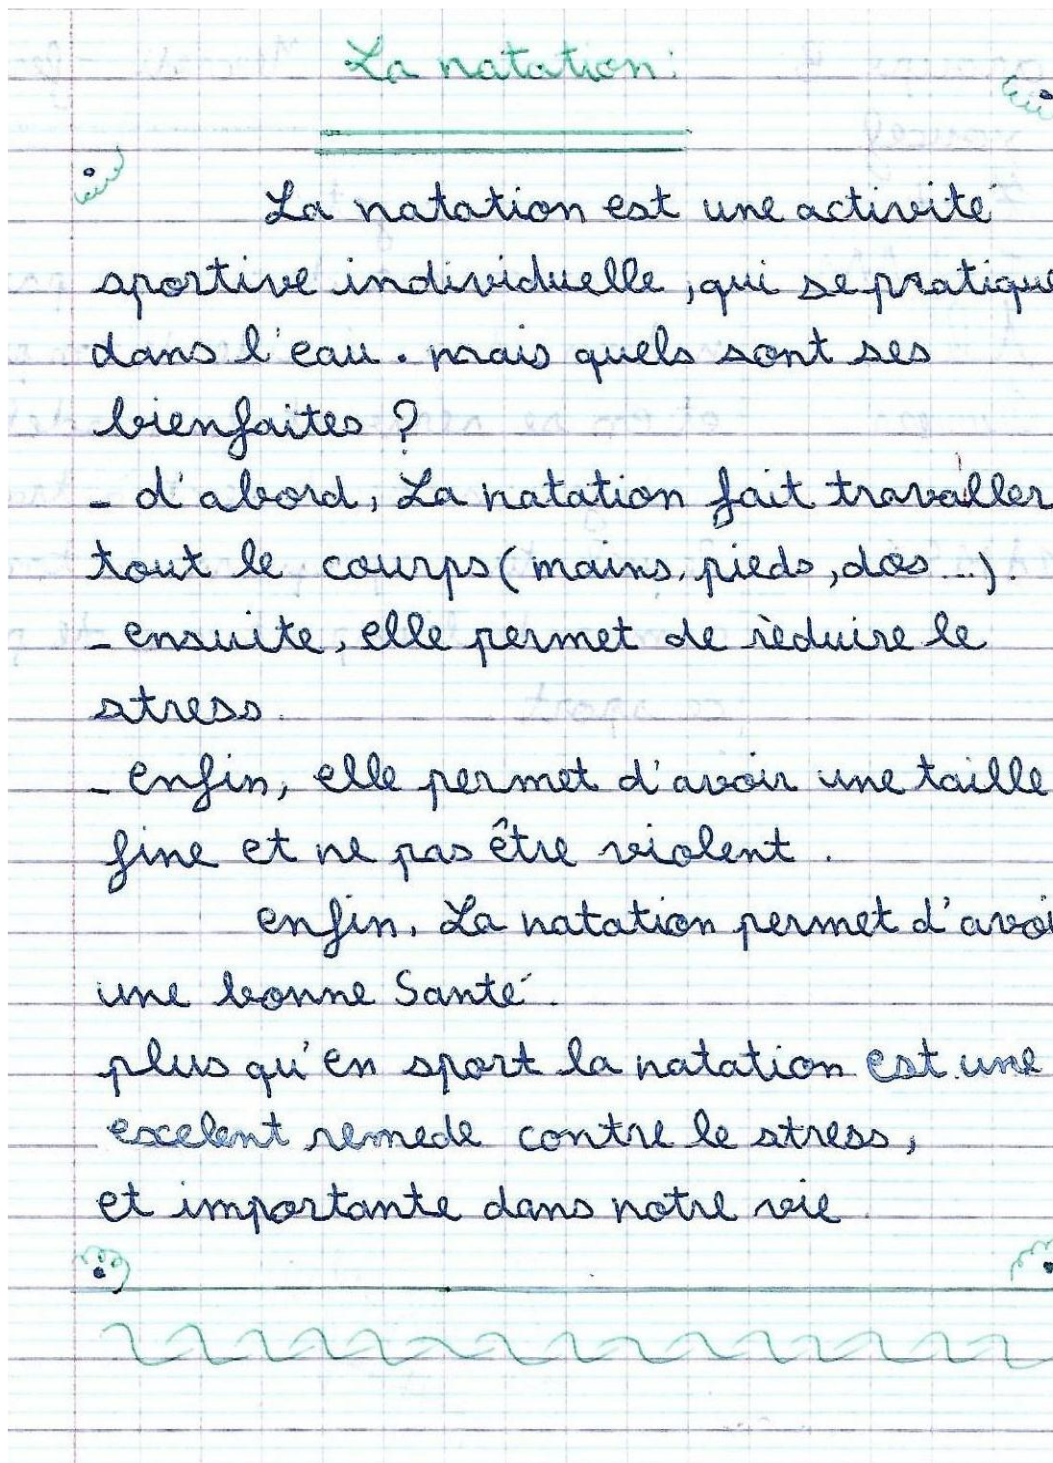 La natation:
La natation est une activité
sportive individuelle, qui se pratique
dans l'eau. mais quels sont ses
bienfaites ?
- d'abord, La natation fait travaller
tout le courps (mains, pieds, dos...).
- ensuite, elle permet de rèduire le
stress.
- enfin, elle permet d'avoir une taille
fine et ne pas être violent.
enfin, La natation permet d'avoi
une bonne Santé.
plus qu'en sport la natation est une
excelent remede contre le stress,
et importante dans notre vie.